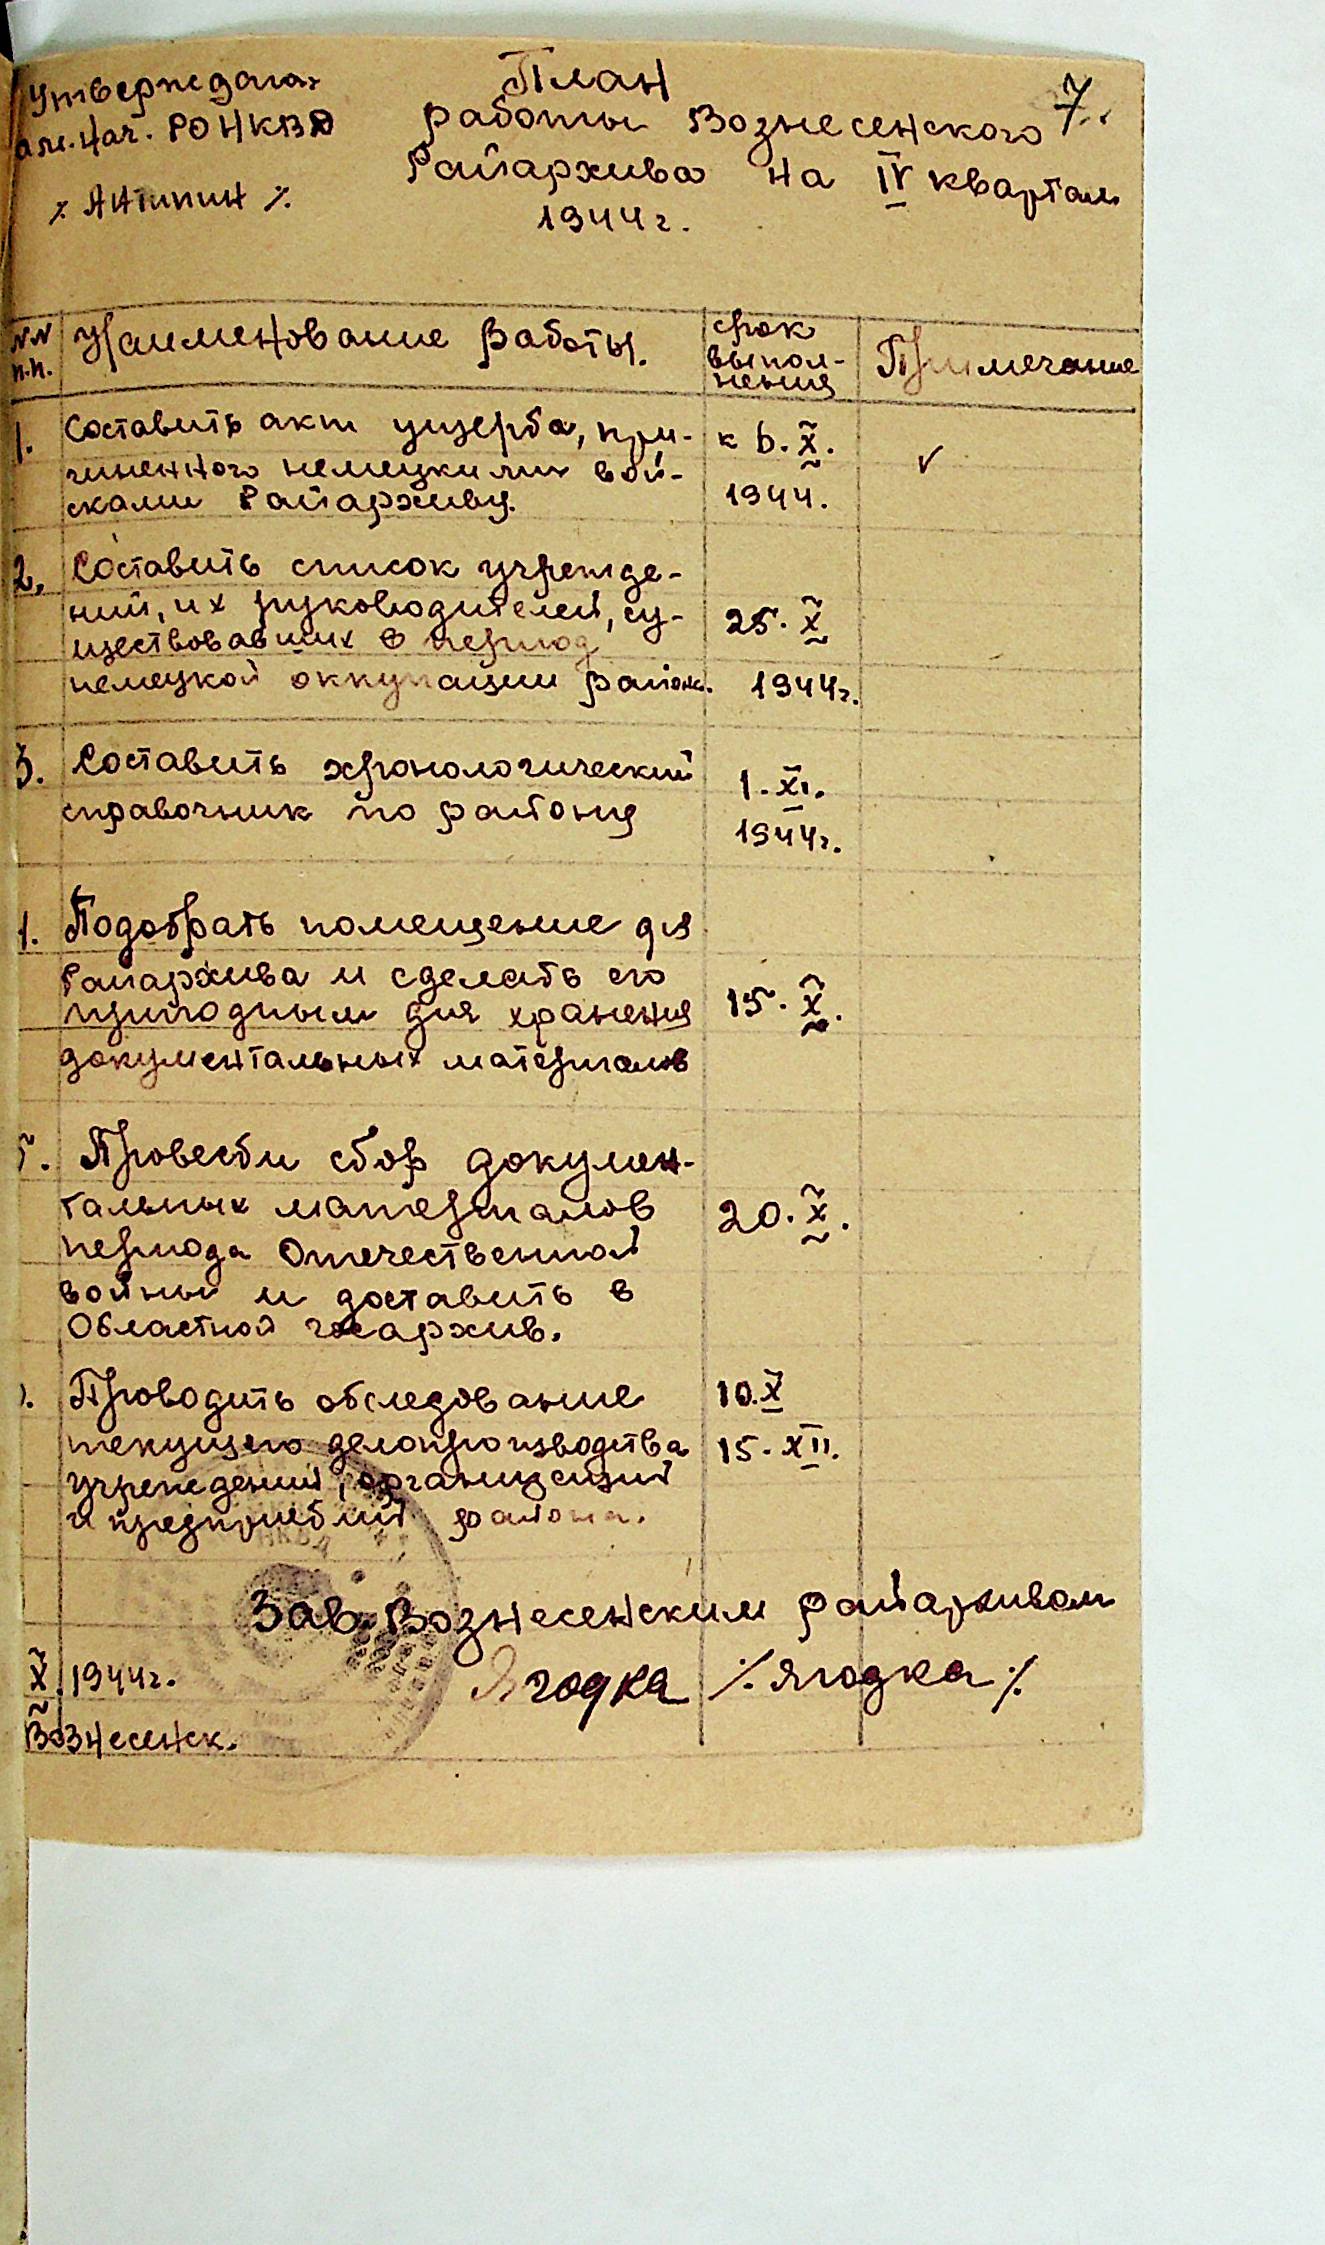 Утверждаю
зам. нач. РО НКВД
/ Антипин /
План
работы Вознесенского
Райархива на IV квартал
1944 г.
7.
№№ п.п.
Наименование работы.
срок выпол-
нения
Примечание
1. Составить акт ущерба, при-
чиненного немецкими вой-
сками Райархиву.
к 6. X.
1944.
✓
2. Составить список учрежде-
ний, их руководителей, су-
ществовавших в период
немецкой оккупации района.
25. X
1944 г.
3. Составить хронологический
справочник по району
1. XI.
1944 г.
4. Подобрать помещение для
Райархива и сделать его
пригодным для хранения
документальных материалов
15. X.
5. Провести сбор докумен-
тальных материалов
периода Отечественной
войны и доставить в
Областной госархив.
20. X.
Проводить обследование
текущего делопроизводства
учреждений, организаций
и предприятий района.
10. X
15. XII.
Зав. Вознесенским райархивом
Ягодка / Ягодка /
X 1944 г.
Вознесенск.